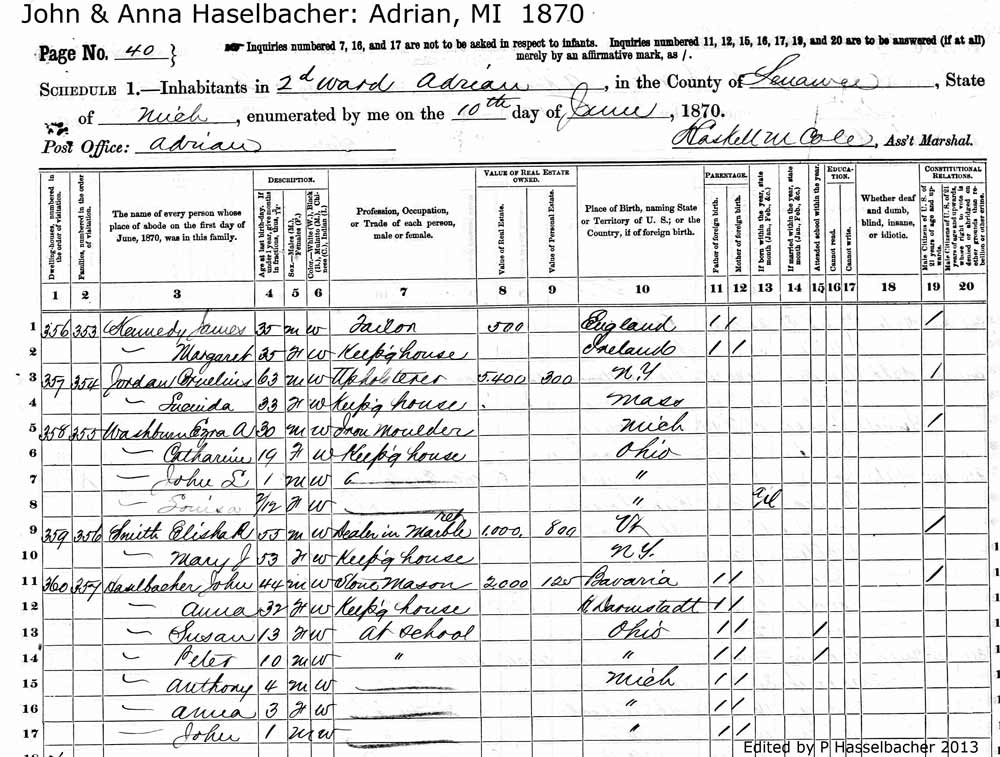 John & Anna Haselbacher: Adrian, MI 1870
Page No. 40 } Inquiries numbered 7, 16, and 17 are not to be asked in respect to infants. Inquiries numbered 11, 12, 15, 16, 17, 19, and 20 are to be answered (if at all)
merely by an affirmative mark, as /.
Schedule 1.—Inhabitants in 2d Ward Adrian, in the County of Lenawee, State
of Mich, enumerated by me on the 10th day of June, 1870.
Post Office: Adrian Haskell M Cole, Ass't Marshal.
Dwelling-houses, numbered in the order of visitation.
Families, numbered in the order of visitation.
The name of every person whose place of abode on the first day of June, 1870, was in this family.
Description.
Age at last birth-day. If under 1 year, give months in fractions, thus,
Sex.—Males (M.), Females (F.)
Color.—White (W.), Black (B.), Mulatto (M.), Chinese (C.), Indian (I.)
Profession, Occupation, or Trade of each person, male or female.
Value of Real Estate owned.
Value of Real Estate.
Value of Personal Estate.
Place of Birth, naming State or Territory of U. S.; or the Country, if of foreign birth.
Parentage.
Father of foreign birth.
Mother of foreign birth.
If born within the year, state month (Jan., Feb., &c.)
If married within the year, state month (Jan., Feb., &c.)
Attended school within the year.
Education.
Cannot read.
Cannot write.
Whether deaf and dumb, blind, insane, or idiotic.
Constitutional Relations.
Male Citizens of U.S. of 21 years of age and upwards.
Male Citizens of U.S. of 21 years of age and upwards, whose right to vote is denied or abridged on other grounds than rebellion or other crime.
1 2 3 4 5 6 7 8 9 10 11 12 13 14 15 16 17 18 19 20
1 356 353 Kennedy James 35 M W Tailor 500 England / / /
2 — Margaret 35 F W Keep'g house Ireland / /
3 357 354 Jordan Cornelius 63 M W Upholsterer 5.400 300 N.Y /
4 — Lucinda 33 F W Keep'g house Mass
5 358 355 Washburn Ezra A 30 M W Iron Moulder Mich /
6 — Catharine 19 F W Keep'g house Ohio
7 — John L 1 M W "
8 — Louisa F W "
9 359 356 Smith Elisha R 55 M W Dealer in Marble 1.000. 800 Vt /
10 — Mary J 53 F W Keep'g house N.Y. 1
11 360 357 Haselbacher John 44 M W Stone Mason 2.000 120 Bavaria / / / 1
12 — Anna 32 F W Keep'g house H Darmstadt / / 1
13 — Susan 13 F W At School Ohio / / / 1
14 — Peter 10 M W " " / / / 1
15 — Anthony 4 M W — Mich / / 1
16 — Anna 3 F W — " / / 1
17 — John 1 M W — " / / 1
Edited by P Hasselbacher 2013